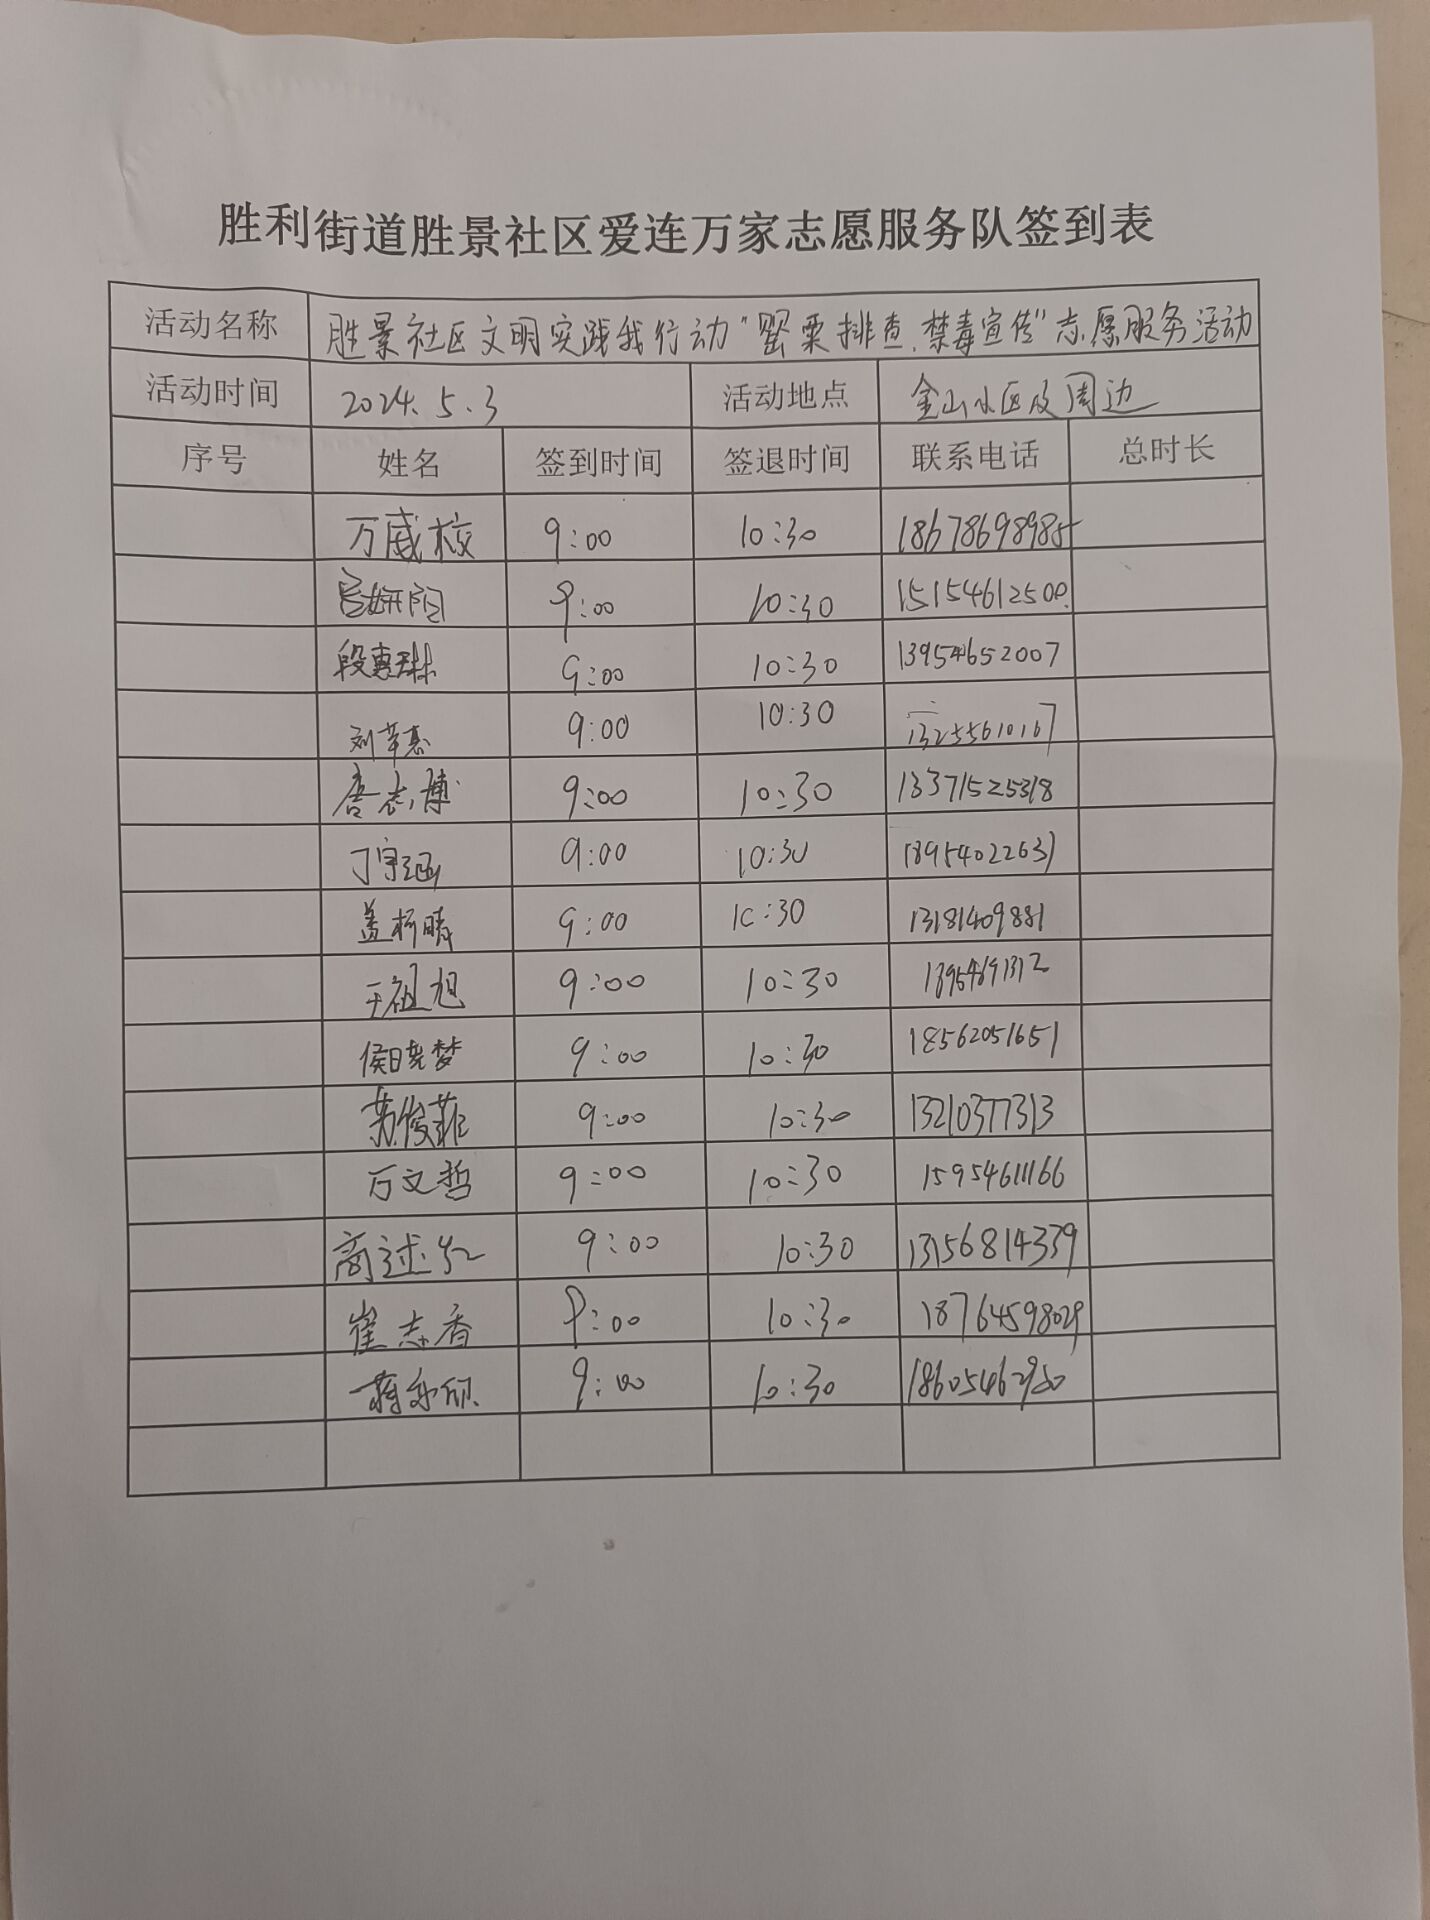 胜利街道胜景社区爱连万家志愿服务队签到表
活动名称 胜景社区文明实践我行动“罂粟排查、禁毒宣传”志愿服务活动
活动时间 2024.5.3 活动地点 金山小区及周边
序号 姓名 签到时间 签退时间 联系电话 总时长
万威校 9:00 10:30 18678698985
9:00 10:30 15154612500
段惠琳 9:00 10:30 13954652007
刘苹惠 9:00 10:30 13255610167
唐志博 9:00 10:30 13371525318
丁宇涵 9:00 10:30 18954022631
盖柯晴 9:00 10:30 13181409881
王祖旭 9:00 10:30 13954691312
侯晓梦 9:00 10:30 18562051651
苏俊菲 9:00 10:30 13210377313
万文哲 9:00 10:30 15954611166
商述红 9:00 10:30 13156814339
崔志香 9:00 10:30 18764598029
蒋永欣 9:00 10:30 18605462950